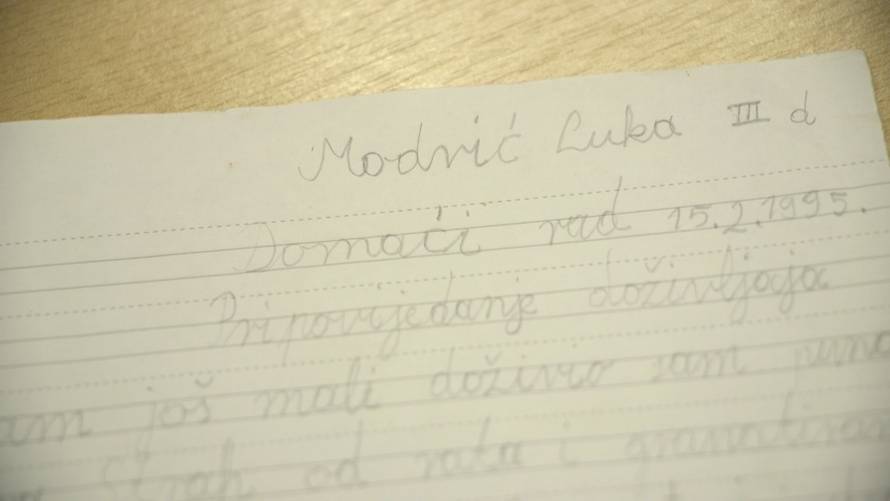 Modrić Luka III d
Domaći rad 15.2.1995.
Pripovijedanje doživljaja
am još mali doživio sam puno
strah od rata i granatiran